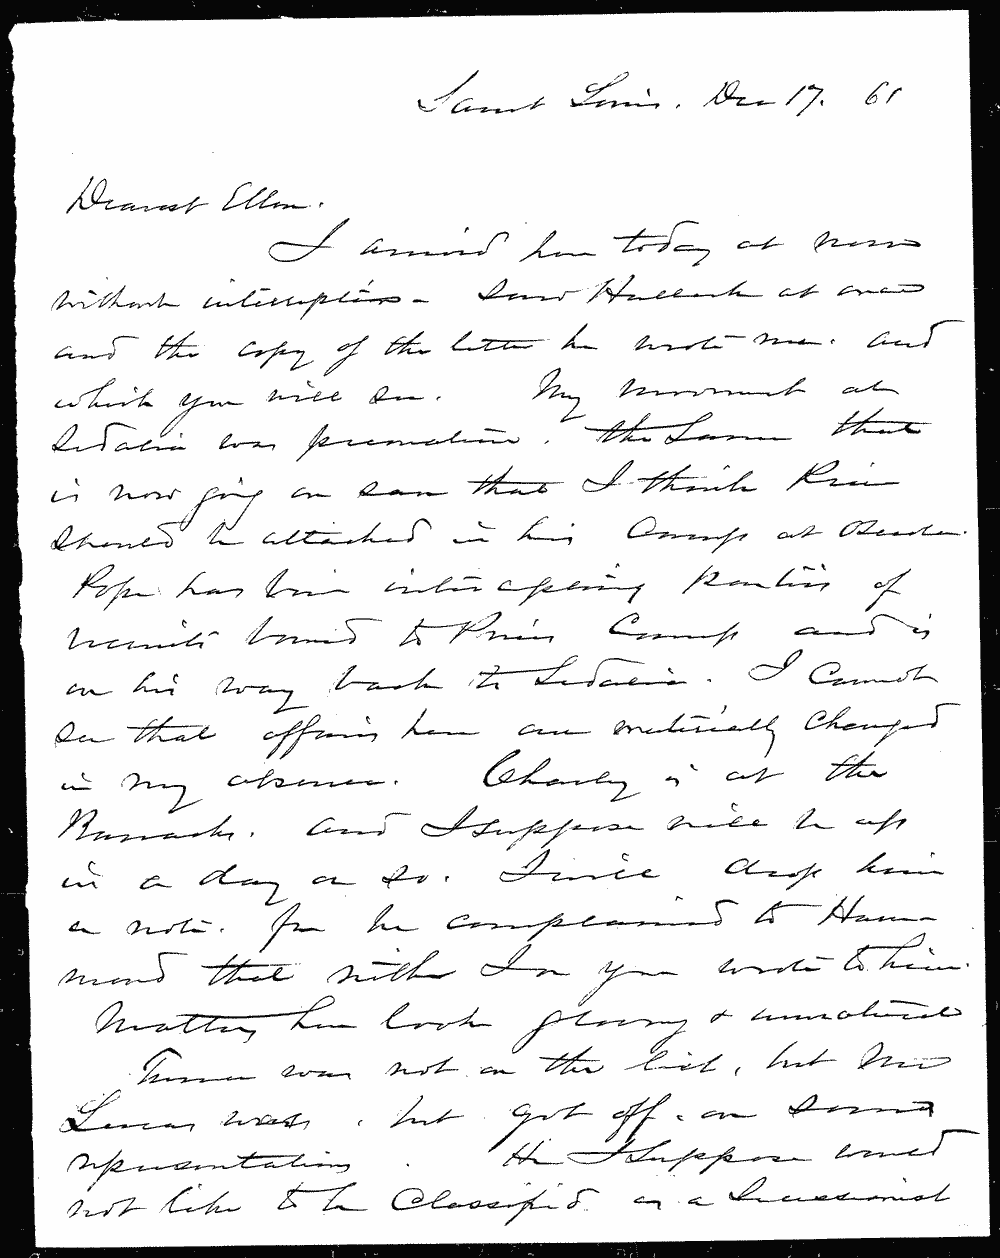 Saint Louis. Dec 17. 61
Dearest Ellen.
I arrived here today at noon
without interruption - saw Halleck at once
and the copy of the letter he wrote me. and
which you will see. My movement at
Sedalia was premature. the same that
is now going on save that I think Price
should be attacked in his Camp at Osceola.
Pope has been intercepting parties of
recruits bound to Prices Camp and is
on his way back to Sedalia. I cannot
see that affairs here are materially changed
in my absence. Charley is at the
Barracks. and I suppose will be up
in a day or so. I will drop him
a note. for he complained to Ham
mond that neither I or you wrote to him.
Matters here look gloomy & unnatural
Turner was not on the list, but Mr
Lucas was. but got off. on some
representations. He I suppose would
not like to be Classified as a Secessionist